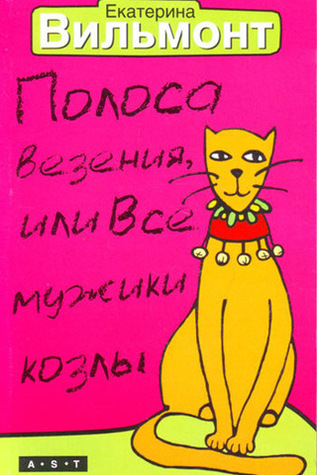 Екатерина
Вильмонт
Полоса
везения,
или Все
мужики
козлы
A·S·T